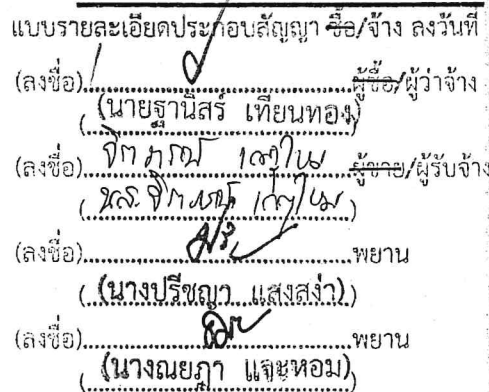 แบบรายละเอียดประกอบสัญญา ซื้อ/จ้าง ลงวันที่
(ลงชื่อ) ผู้ซื้อ/ผู้ว่าจ้าง
(นายฐานิสร์ เทียนทอง)
(ลงชื่อ) ผู้ขาย/ผู้รับจ้าง
(ลงชื่อ) พยาน
(นางปรีชญา แสงสง่า)
(ลงชื่อ) พยาน
(นางณยฎา แจะหอม)